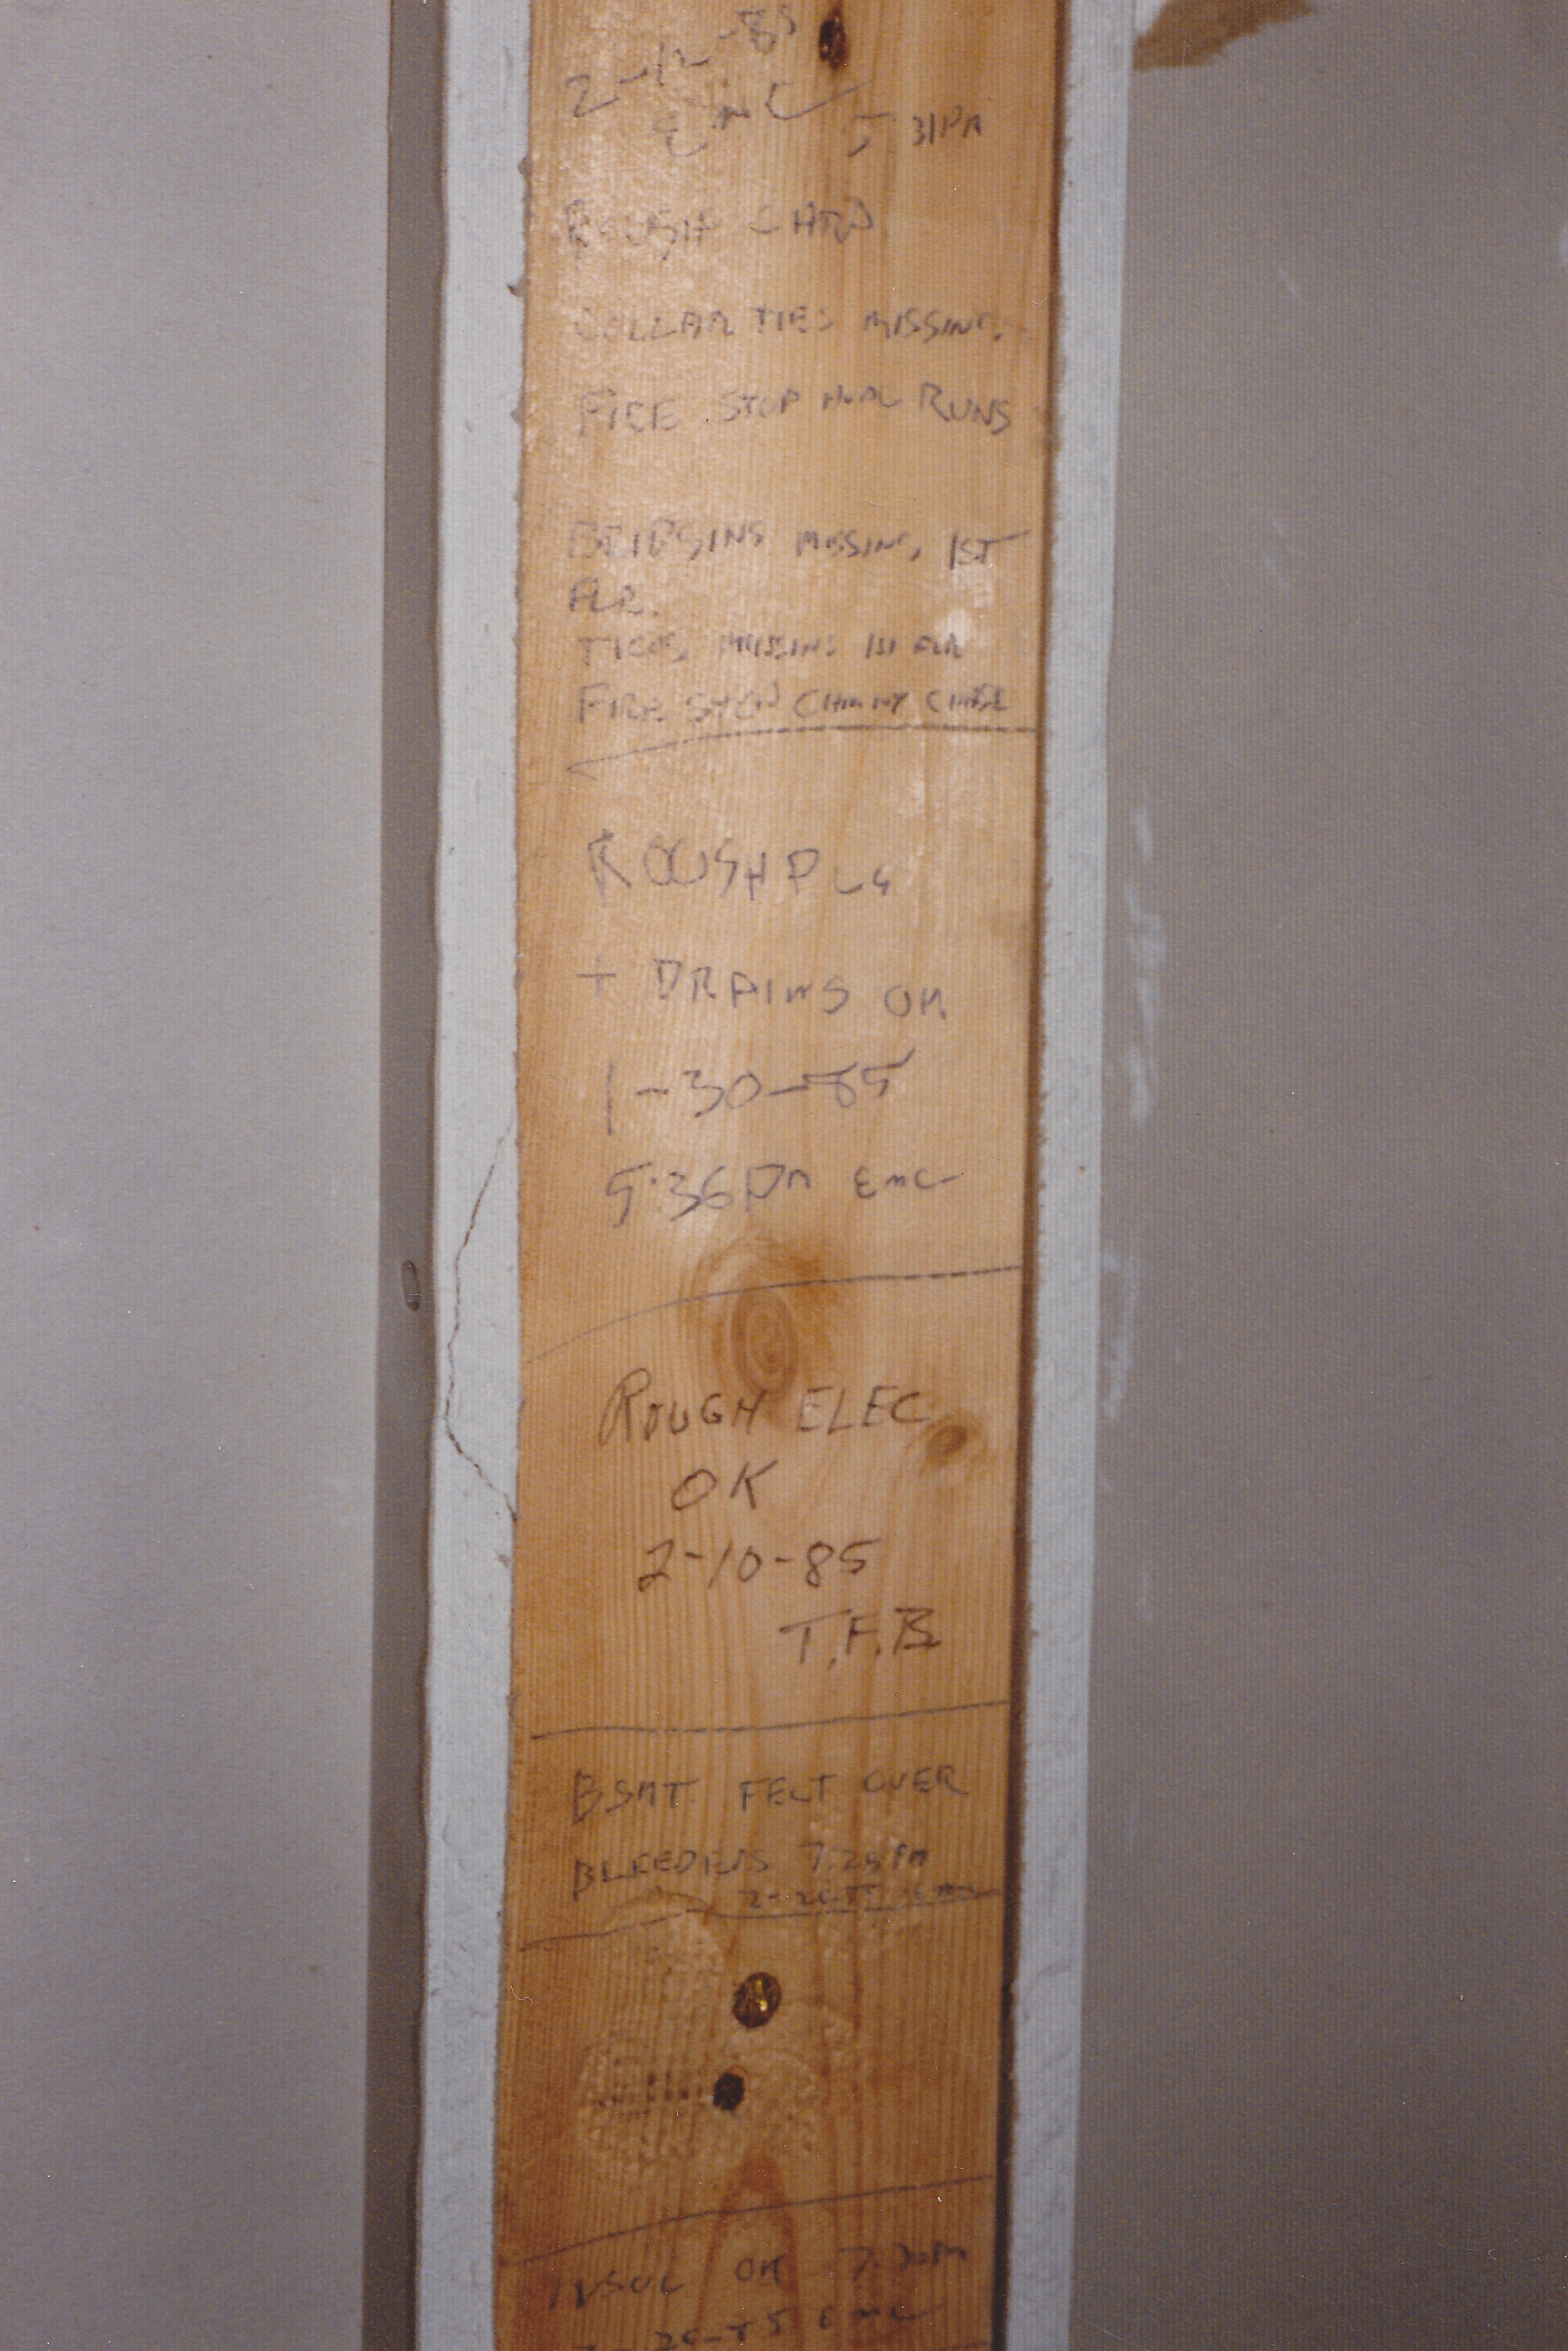 2-12-85
EMC 5 31PM
ROUGH CARP
COLLAR TIES MISSING.
FIRE STOP HVAC RUNS
BRIDGING MISSING, 1ST
FLR.
MISSING 1ST FLR
FIRE CHIMNY CHASE
ROUGH PLG
+ DRAINS OK
1-30-85
5:36PM EMC
ROUGH ELEC
OK
2-10-85
T.F.B
BSMT FELT OVER
BLEEDERS
INSUL OK
EMC